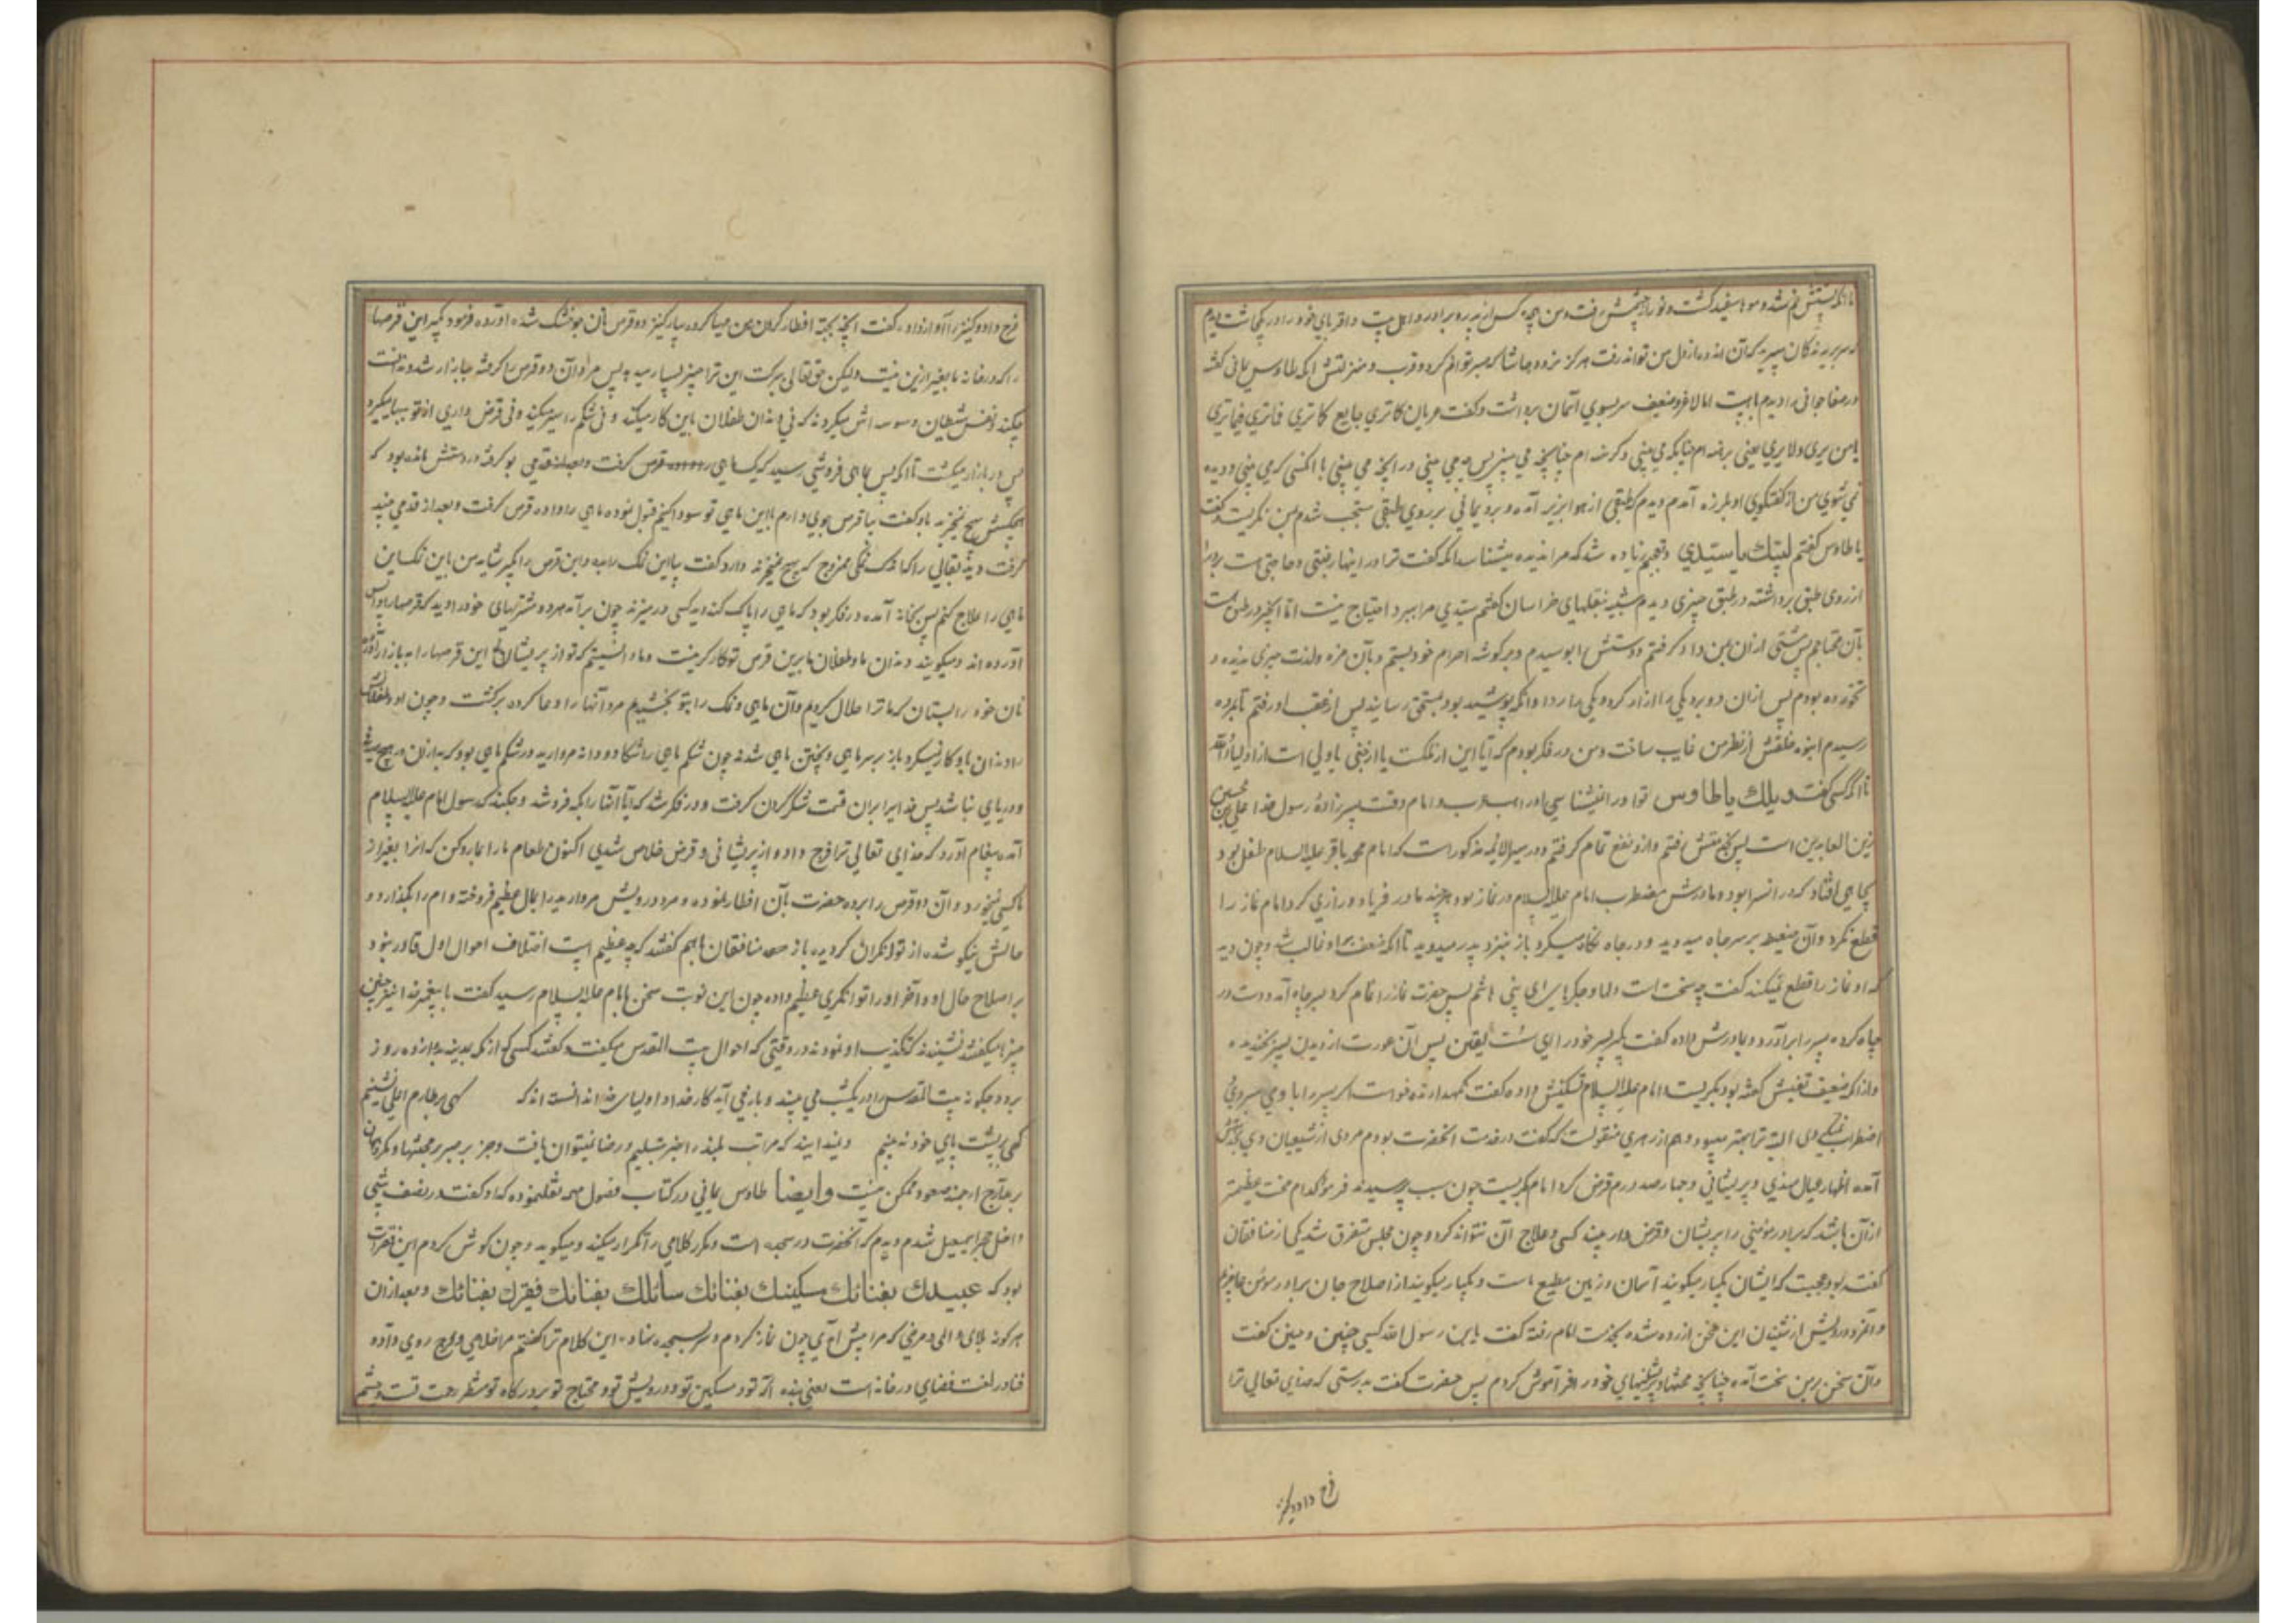 تا آنکه پشتش خم شد و مو سفید گشت و نور از چشمش رفت و من هجده کس از پدر و برادر و اهل بیت و اقربای خود را در یکجا کشته دیدم
سر بریده کمان میبرید که آن اندوه از دل من تواند رفت هرگز نرود حاشا که صبر توانم کرد و قرب و منزلتش آنکه طاوس یمانی گفته
در صفا جوانی را دیدم با هیبت اما لاغر و ضعیف سر بسوی آسمان برداشت و گفت عریان کما تری جایع کما تری فما تری فیما تری
یا من یری و لا یری یعنی برهنه ام چنانکه می بینی و گرسنه ام چنانچه می بینی پس چه می بینی در آنچه می بینی یا آنکسی که می بینی و دیده
نمی شوی من از گفتگوی او بلرزه آمدم دیدم که طبقی از هوا بزیر آمده و برد یمانی بر روی طبق متعجب شدم بمن نگریست و گفت
یا طاوس گفتم لبیك یا سیدی و تعجبم زیاده شد که مرا ندیده میشناسد آنکه گفت ترا در اینها رغبتی و حاجتی است برد را
از روی طبق برداشته در طبق چیزی دیدم شبیه بنقلهای خراسان گفتم سیدی مرا ببرد احتیاج نیست اما آنچه در طبق است
بآن محتاجم پس مشتی از آن بمن داد گرفتم و دستش را بوسیدم و بر گوشه احرام خود بستم و بآن مزه و لذت چیزی ندیده و
نخورده بودم پس از آن دو برد یکی را ازار کرد و یکی را ردا و آنکه پوشیده بود بمستحق رسانید پس از عقب او رفتم تا بمروه
رسیدم انبوه خلقش از نظر من غایب ساخت و من در فکر بودم که آیا این از ملکست یا از جنی یا ولی است از اولیاء الله
تا آنکه کسی گفت ویلك یا طاوس تو او را نمیشناسی او راهب عرب و امام وقت پسر زاده رسول خدا علی بن الحسین
زین العابدین است پس بخدمتش رفتم و از او نفع تمام گرفتم و در سیر الائمه مذکور است که امام محمد باقر علیه السلام طفل بود
بچاهی افتاد که در آنسرا بود و مادرش مضطرب امام علیه السلام در نماز بود هر چند مادر فریاد و زاری کرد امام نماز را
قطع نکرد و آن ضعیفه بر سر چاه میدوید و در چاه نگاه میکرد باز نزد پدر میدوید تا آنکه ضعف بر او غالب شد و چون دید
که او نماز را قطع نمیکند گفت چه سخت است دلها و جگرهای ای بنی هاشم پس حضرت نماز را تمام کرد بسر چاه آمد و دست در
چاه کرده پسر را برآورد و بمادرش داده گفت بگیر پسر خود را ای سست یقین پس آن عورت از دیدن پسر بخندیده
و از آنکه ضعیف یقینش گفته بود بگریست امام علیه السلام تسکینش داده گفت نگهدارنده خواست اگر پسر را با وی میسپردی
اضطراب نمیکردی البته ترا بهتر میبود و هم از زهری منقولست که گفت در خدمت آنحضرت بودم مردی از شیعیان وی بخدمتش
آمده اظهار عیال مندی و پریشانی و چهار صد درم قرض کرد امام بگریست چون سبب پرسیدند فرمود کدام محنت عظیمتر
از آن باشد که برادر مؤمنی را پریشان و قرض دار بیند کسی و علاج آن نتواند کرد و چون مجلس متفرق شد یکی از منافقان
گفت بود عجبست که ایشان یکبار میگویند آسمان و زمین مطیع ماست و یکبار میگویند از اصلاح حال برادر مؤمن عاجزیم
و آنمرد درویش از شنیدن این سخن آزرده شده بخدمت امام رفته گفت یا ابن رسول الله کسی چنین و چنین گفت
و آن سخن بر من سخت آمد چنانچه محنتها و پریشانیهای خود را فراموش کردم پس حضرت گفت بدرستی که خدای تعالی ترا
فرج داد و کنیز
فرج داد و کنیز را آواز داد و گفت آنچه بجهة افطار کردن من مهیا کرده بیار کنیز دو قرص نان جو خشک شده آورده فرمود بگیر این قرصها
را که در خانه ما بغیر از این نیست ولیکن حق تعالی ببرکت این ترا چیز بسیار میدهد پس مرد آن دو قرص را گرفته ببازار شد و نمیدانست
چکند و نفس شیطان وسوسه اش میکردند که نی دندان طفلان باین کار میکند و نی شکم را سیر میکند و نی قرض داری از تو میگیرد
پس در بازار میگشت تا آنکه پس بماهی فروشی رسید که یک ماهی قرص گرفت و بعد از قدمی بو گرفته در دستش مانده بود که
هیچکسش هیچ نمیخرید باو گفت بیا قرص جوی دارم باین ماهی تو سودا کنیم قبول نموده ماهی را داده قرص گرفت و بعد از قدمی چند
گرفت دید بقالی را که اندک نمکی ممزوج که هیچ نمیخرند دارد گفت بیا این نمک را بده و این قرص را بگیر شاید من باین نمک این
ماهی را علاج کنم پس بخانه آمده در فکر بود که ماهی را پاک کند دید کسی در میزند چون برآمد هر دو مشتریهای خود را دید که قرصها را واپس
آورده اند و میگویند دندان ما و طفلان ما برین قرص تو کارگر نیست و ما دانستیم که تو از پریشانی این قرصها را ببازار آورده
نان خود را بستان که ما ترا حلال کردیم و آن ماهی و نمک را بتو بخشیدیم مرد آنها را دعا کرده برگشت و چون او و طفلانش
را دندان بآن کار نمیکرد باز بر سر ماهی و پختن ماهی شدند چون شکم ماهی را شکافتند دو دانه مروارید در شکم ماهی بود که به از آن در هیچ صدفی
و دریای نباشد پس خدا را بر آن نعمت شکر کردن گرفت و در فکر شد که آیا آنها را بکه فروشد و چکند که رسول امام علیه السلام
آمده پیغام آورد که خدای تعالی ترا فرج داد و از پریشانی و قرض خلاص شدی اکنون طعام ما را بما رد کن که آنرا بغیر از
ما کسی نمیخورد و آن دو قرص را برده حضرت بآن افطار نموده و مرد درویش مروارید را بمال عظیم فروخته وام را بگذارد و
حالش نیکو شده از توانگران گردید باز منافقان باهم گفتند که چه عظیم است اختلاف احوال اول قادر نبود
بر اصلاح حال او و آخر او را توانگری عظیم داده چون این نوبت سخن بامام علیه السلام رسید گفت با پیغمبر خدا نیز چنین
چیزها میگفتند نشنیدند که تکذیب او نمودند در وقتی که احوال بیت المقدس میگفت و گفتند کسی که از مکه بمدینه بدوازده روز
برود چگونه بیت المقدس را در یکشب می بیند و باز می آید کار خدا و اولیای خدا ندانسته اند که گهی بر طارم اعلی نشینم
گهی بر پشت پای خود نبینم و نمیدانند که مراتب بلند را جز بتسلیم و رضا نمیتوان یافت و جز بر صبر بر محنتها و مکروهات
بر معارج ارجمند صعود ممکن نیست وایضا طاوس یمانی در کتاب فصول مهمه نقل نموده که او گفت در نصف شبی
داخل حجر اسمعیل شدم دیدم که آنحضرت در سجده است و مکرر کلامی را تکرار میکند و میگوید و چون گوش کردم این فقرات
بود که عبیدك بفنائك مسکینك بفنائك سائلك بفنائك فقیرك بفنائك و بعد از آن
هر گونه بلای و المی و مرضی که مرا پیش آمدی چون نماز کردم و سر بسجده نهاده این کلام را گفتم مرا خلاصی و فرج روی داده
فنا در لغت فضای در خانه است یعنی بنده تو و مسکین تو و درویش تو و محتاج تو بر درگاه تو منتظر رحمت تست و چشم